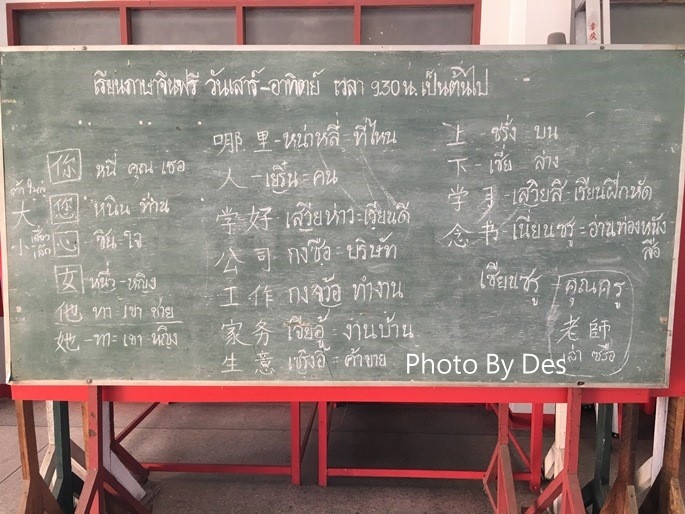 เรียนภาษาจีนฟรี วันเสาร์-อาทิตย์ เวลา 9.30 น. เป็นต้นไป
你 หนี่ คุณ เธอ
大
您 หนิน ท่าน
小 เสี่ยว เล็ก
心 ซิน-ใจ
女 หนี่ว-หญิง
他 ทา เขา ชาย
她 -ทา= เขา หญิง
哪里-หน่าหลี่=ที่ไหน
人-เยิ๋น=คน
学好 เสวียห่าว=เรียนดี
公司 กงซือ=บริษัท
工作 กงจว้อ ทำงาน
家务 เจียอู้=งานบ้าน
生意 เซิงอี้=ค้าขาย
上-ซรั่ง บน
下-เซี่ย ล่าง
学习-เสวียสี-เรียนฝึกหัด
念书-เนี่ยนซรู=อ่านท่องหนัง
สือ
เซียนซรู=คุณครู
老師
ล่า ซรือ
Photo By Des